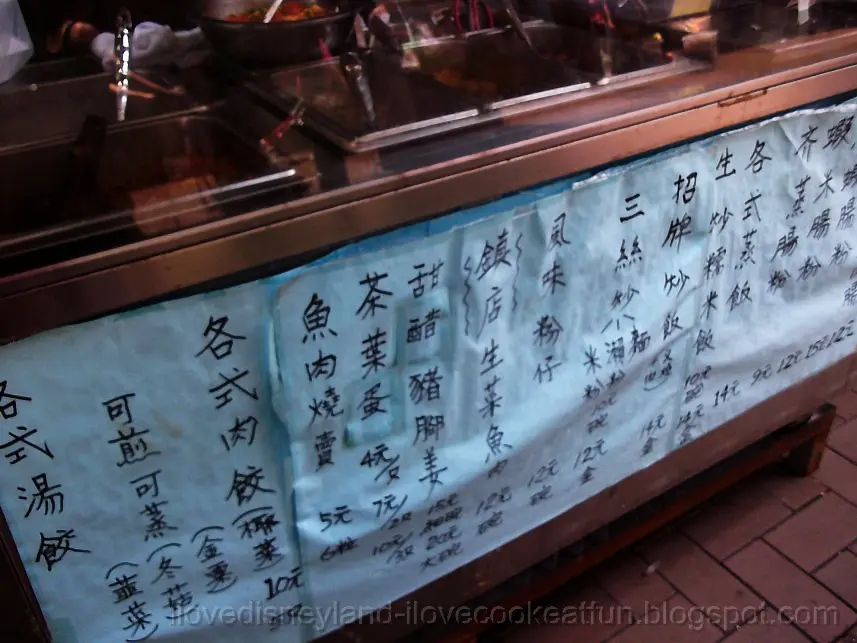 齐蒸腸粉
9元
12元
15元
12元
各式蒸飯
14元
生炒糯米飯
10元碗
14元盒
招牌炒飯
14元盒
三絲炒
麵
瀨粉
米粉
12元盒
風味粉仔
12元碗
鎮店生菜魚肉
12元碗
甜醋豬脚姜
15元
20元大碗
茶葉蛋
4元/
7元/2
10元/3
魚肉燒賣
5元6粒
各式肉餃
10元
可煎可蒸
(椰菜)
(金栗)
(冬菇)
(韮菜)
各式湯餃
ilovedisneyland-ilovecookeatfun.blogspot.com